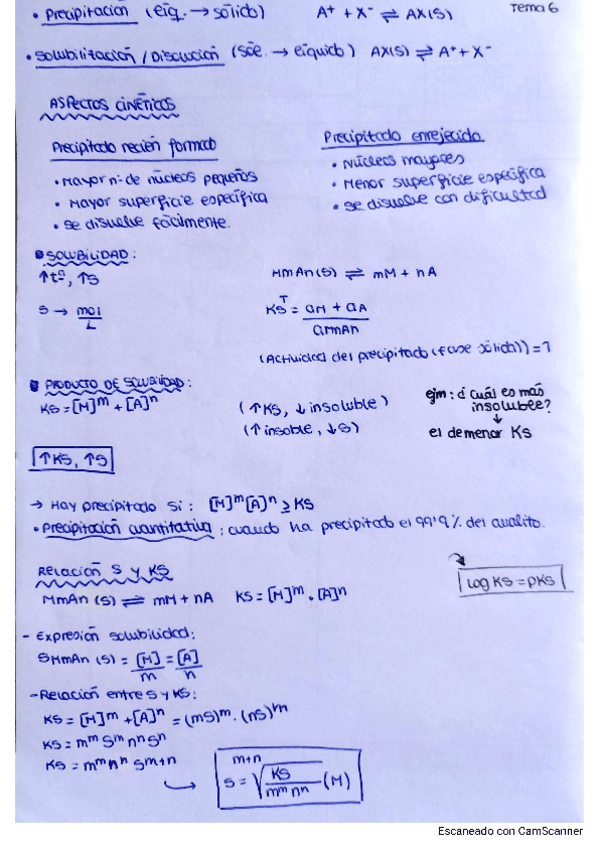 • Precipitación (líq. → sólido)   A⁺ + X⁻ ⇌ AX(s)   Tema 6
• Solubilización / Disolución (sól. → líquido)   AX(s) ⇌ A⁺ + X⁻
ASPECTOS CINÉTICOS
Precipitado recién formado
• Mayor nº de núcleos pequeños
• Mayor superficie específica
• Se disuelve fácilmente.
Precipitado envejecido
• Núcleos mayores
• Menor superficie específica
• Se disuelve con dificultad
SOLUBILIDAD:
↑tª, ↑S   MmAn(s) ⇌ mM + nA
S → mol/L   KSᵀ = (aM + aA)/aMmAn
(Actividad del precipitado (fase sólida)) = 1
PRODUCTO DE SOLUBILIDAD:
KS = [M]ᵐ + [A]ⁿ   (↑KS, ↓insoluble)
(↑insoble, ↓S)
ejm: ¿Cuál es más
insoluble?
↓
el de menor KS
↑KS, ↑S
→ Hay precipitado si: [M]ᵐ[A]ⁿ ≥ KS
• Precipitación cuantitativa: cuando ha precipitado el 99'9% del analito.
Relación S y KS
MmAn (s) ⇌ mM + nA   KS = [M]ᵐ · [A]ⁿ
log KS = pKS
- Expresión solubilidad:
SMmAn (s) = [M]/m = [A]/n
- Relación entre S y KS:
KS = [M]ᵐ + [A]ⁿ = (mS)ᵐ · (nS)ᵐ
KS = mᵐ Sᵐ nⁿ Sⁿ
KS = mᵐ nⁿ Sᵐ⁺ⁿ
→ S = ᵐ⁺ⁿ√(KS/mᵐ nⁿ) (M)
Escaneado con CamScanner